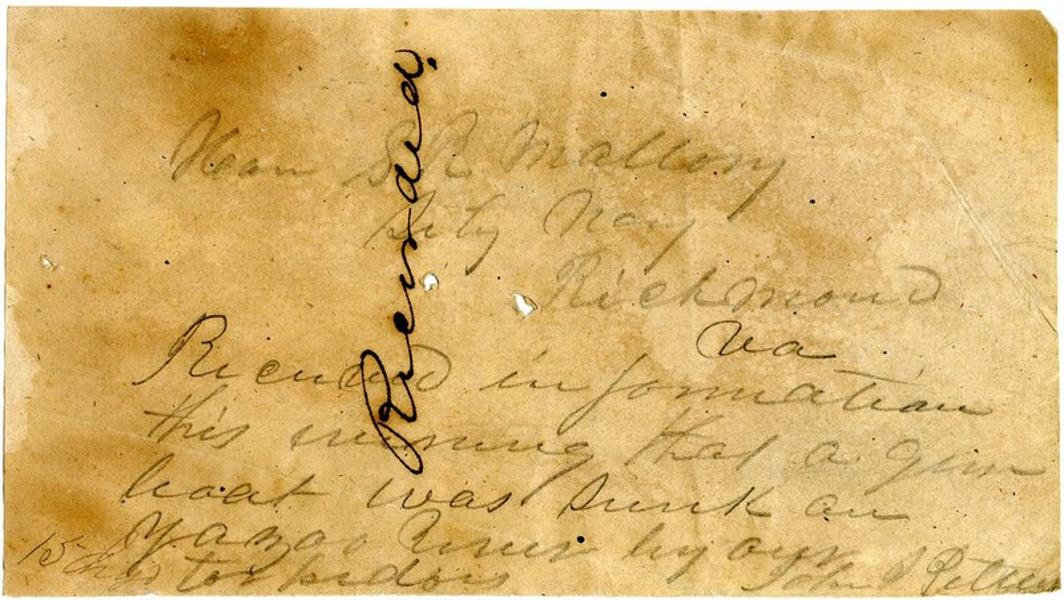 Hon S R Mallory
Secty Navy
Richmond
Va
Received information
this morning that a gun
boat was sunk on
Yazoo River by our
torpedoes John J Pettus
15
Received.